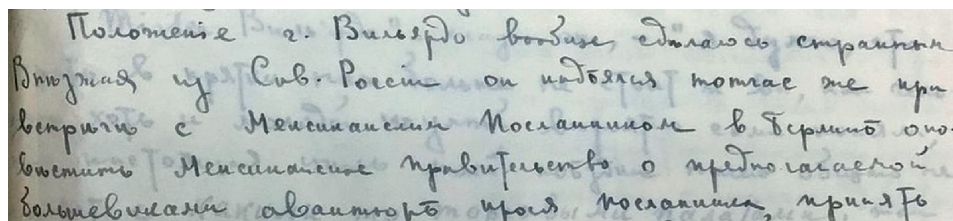 Положенiе г. Вильярдо вообще сдѣлалось странным
Выѣзжая из Сов. Россiи он надѣялся тотчас же при
встрѣчи с Мексиканским Посланником в Берлинѣ опо-
вѣстить Мексиканское правительство о предполагаемой
большевиками авантюрѣ прося посланника, принять